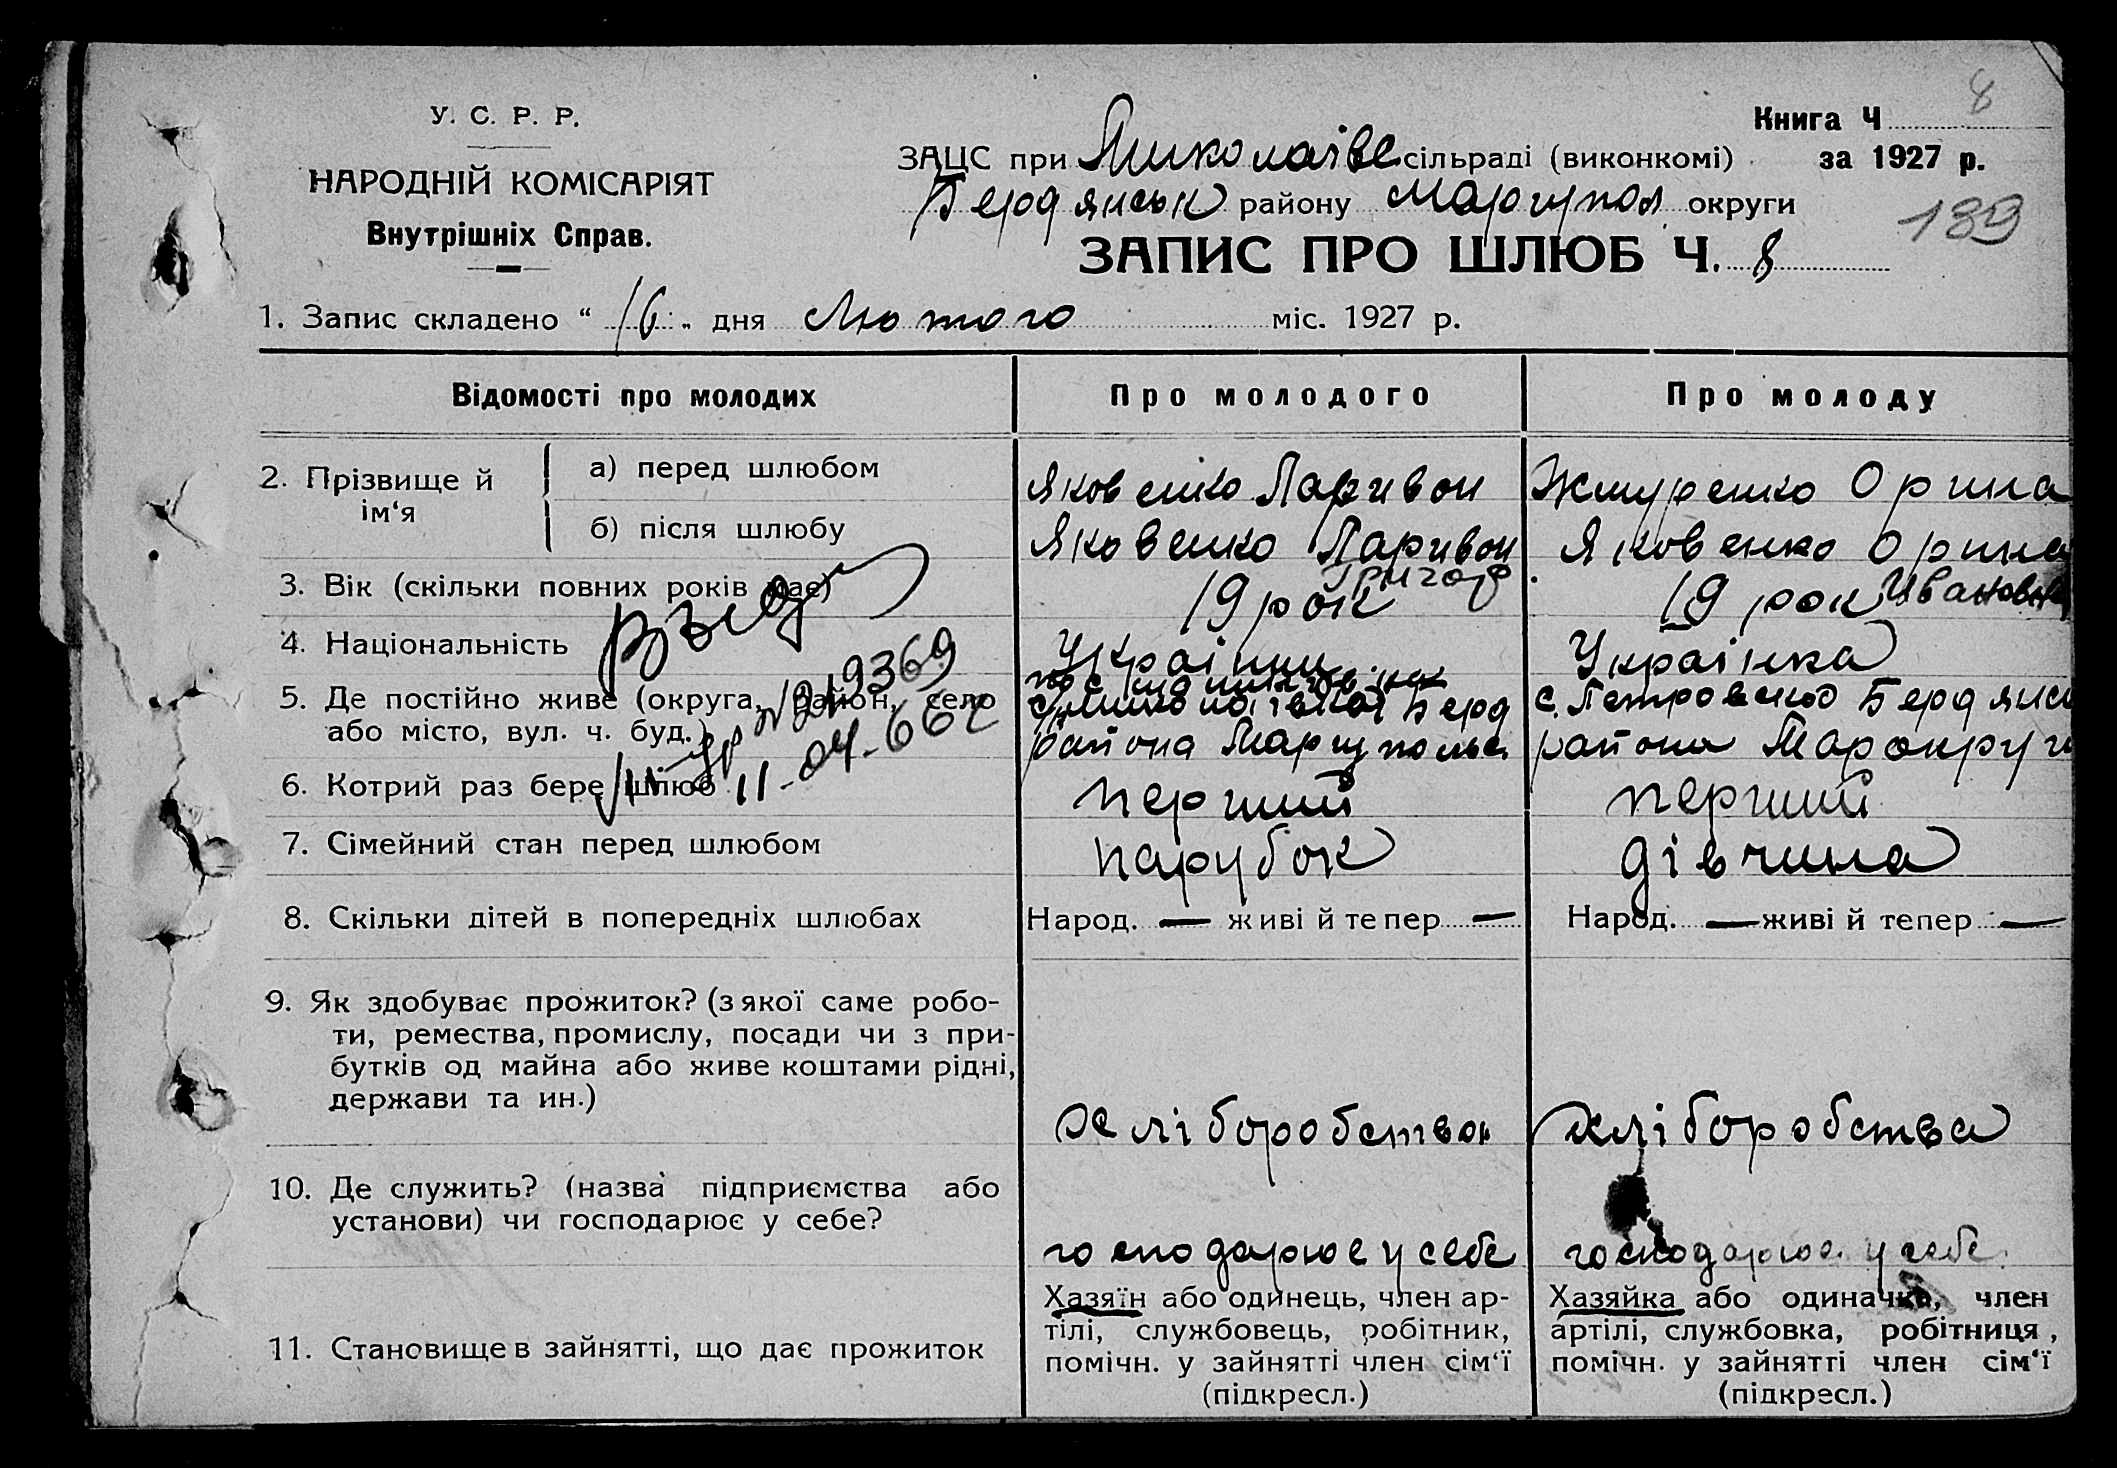 У. С. Р. Р.
НАРОДНІЙ КОМІСАРІЯТ
Внутрішніх Справ.
Книга Ч 8
ЗАЦС при Миколаівс сільраді (виконкомі) за 1927 р.
Бердянськ району Маріупол округи
189
ЗАПИС ПРО ШЛЮБ Ч. 8
1. Запис складено “ 16 „ дня Лютого міс. 1927 р.
Відомості про молодих
Про молодого
Про молоду
2. Прізвище й ім‘я
а) перед шлюбом
Яковенко Ларивон
Жмуренко Орина
б) після шлюбу
Яковенко Ларивон
Яковенко Орина
Григор
Ивановна
3. Вік (скільки повних років має)
19 рок
19 рок
4. Національність
Украінка
5. Де постійно живе (округа, район, село
або місто, вул. ч. буд.)
Берд
района Мариупольс
с. Петровською Бердянсь
района Марокруги
№219369
11-04-662
6. Котрий раз бере шлюб
перший
перший
7. Сімейний стан перед шлюбом
парубок
дівчина
8. Скільки дітей в попередніх шлюбах
Народ. — живі й тепер —
Народ. — живі й тепер —
9. Як здобуває прожиток? (з якої саме робо-
ти, ремества, промислу, посади чи з при-
бутків од майна або живе коштами рідні,
держави та ин.)
хліборобства
хліборобства
10. Де служить? (назва підприємства або
установи) чи господарює у себе?
господарює у себе
господарює у себе
11. Становище в зайнятті, що дає прожиток
Хазяїн або одинець, член ар-
тілі, службовець, робітник,
помічн. у зайнятті член сім‘ї
(підкресл.)
Хазяйка або одиначка, член
артілі, службовка, робітниця,
помічн. у зайнятті член сім‘ї
(підкресл.)